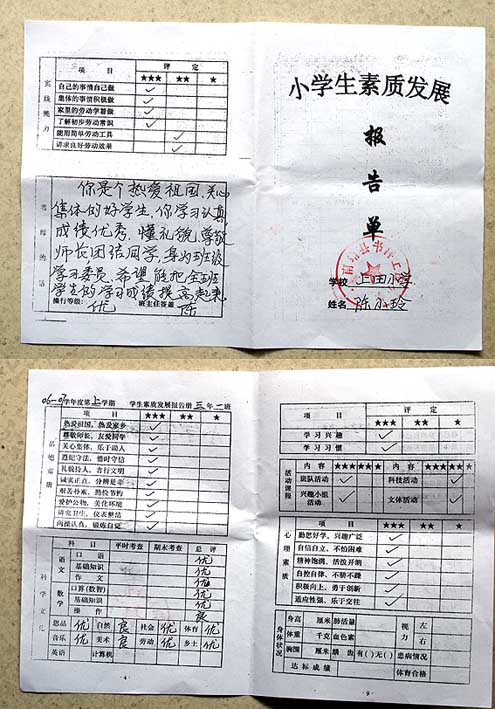 项 目 评 定
★★★ ★★ ★
实践能力
自己的事情自己做
集体的事情积极做
家里的劳动学着做
了解初步劳动常识
能用简单劳动工具
讲求良好劳动效果
老师的话
你是个热爱祖国,关心
集体的好学生,你学习认真
成绩优秀,懂礼貌,尊敬
师长团结同学,身为班级
学习委员,希望能把全班
学生的学习成绩提高起来。
操行等级: 优 班主任签章 陈
小学生素质发展
报告单
学校 上田小学
姓名 陈小玲
06-07学年度第上学期 学生素质发展报告册 三年一班
项 目 ★★★ ★★ ★
品德素质
热爱祖国,热爱家乡
尊敬师长,友爱同学
关心集体,乐于助人
遵纪守法,惜时守信
礼貌待人,言行文明
诚实正直,分辨是非
艰苦朴素,勤俭节约
爱护公物,美化环境
讲究卫生,仪表整洁
向操认真,锻炼自觉
科目 平时考查 期末考查 总评
科学文化
语文 口语 优
基础知识 优
作文 优
数学 口算(数智) 优
基础知识 优
操作 良
思品 优 自然 良 社会 优 体育 优
音乐 优 美术 良 劳动 优 乡土 优
英语 计算机
4
项 目 评 定
★★★ ★★ ★
学习兴趣
学习习惯
活动课程
内容 ★★★ ★★ ★ 内容 ★★★ ★★ ★
班队活动 科技活动
兴趣小组活动 文体活动
项 目 ★★★ ★★ ★
心理素质
勤思好学,兴趣广泛
自信自立,不怕困难
精神饱满,活泼开朗
自控自律,不骄不躁
积极向上,勇于创新
适应性强,乐于交往
身体状况
身高 厘米 肺活量 视力 左
体重 千克 血色素 右
胸围 厘米 龋齿 有( )无( ) 患病情况
达标成绩 体育合格
9